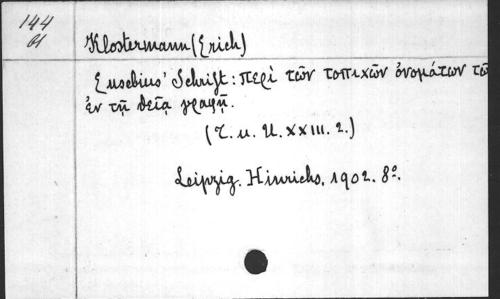 144
Klostermann (Erich)
Eusebius' Schrift: περὶ τῶν τοπικῶν ὀνομάτων τῶ
ἐν τῇ θείᾳ γραφῇ.
(T. u. U. XXIII. 2.)
Leipzig. Hinrichs. 1902. 8°.